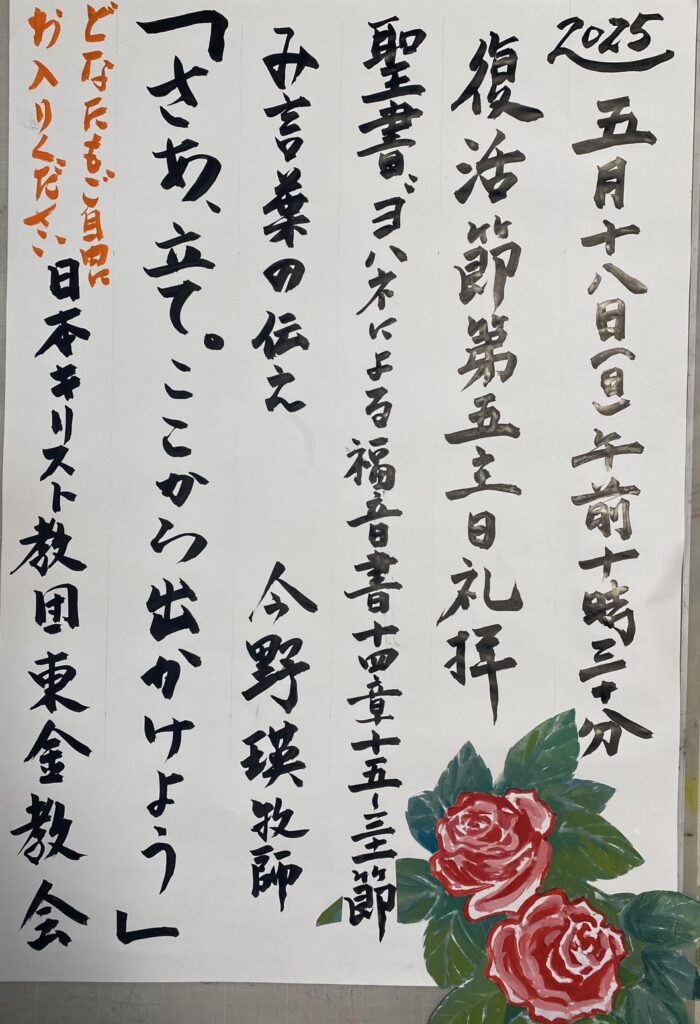 2025
五月十八日(日)午前十時三十分
復活節第五主日礼拝
聖書:ヨハネによる福音書十四章十五~三十一節
み言葉の伝え 今野瑛牧師
「さあ、立て。ここから出かけよう」
どなたもご自由に
お入りください
日本キリスト教団東金教会